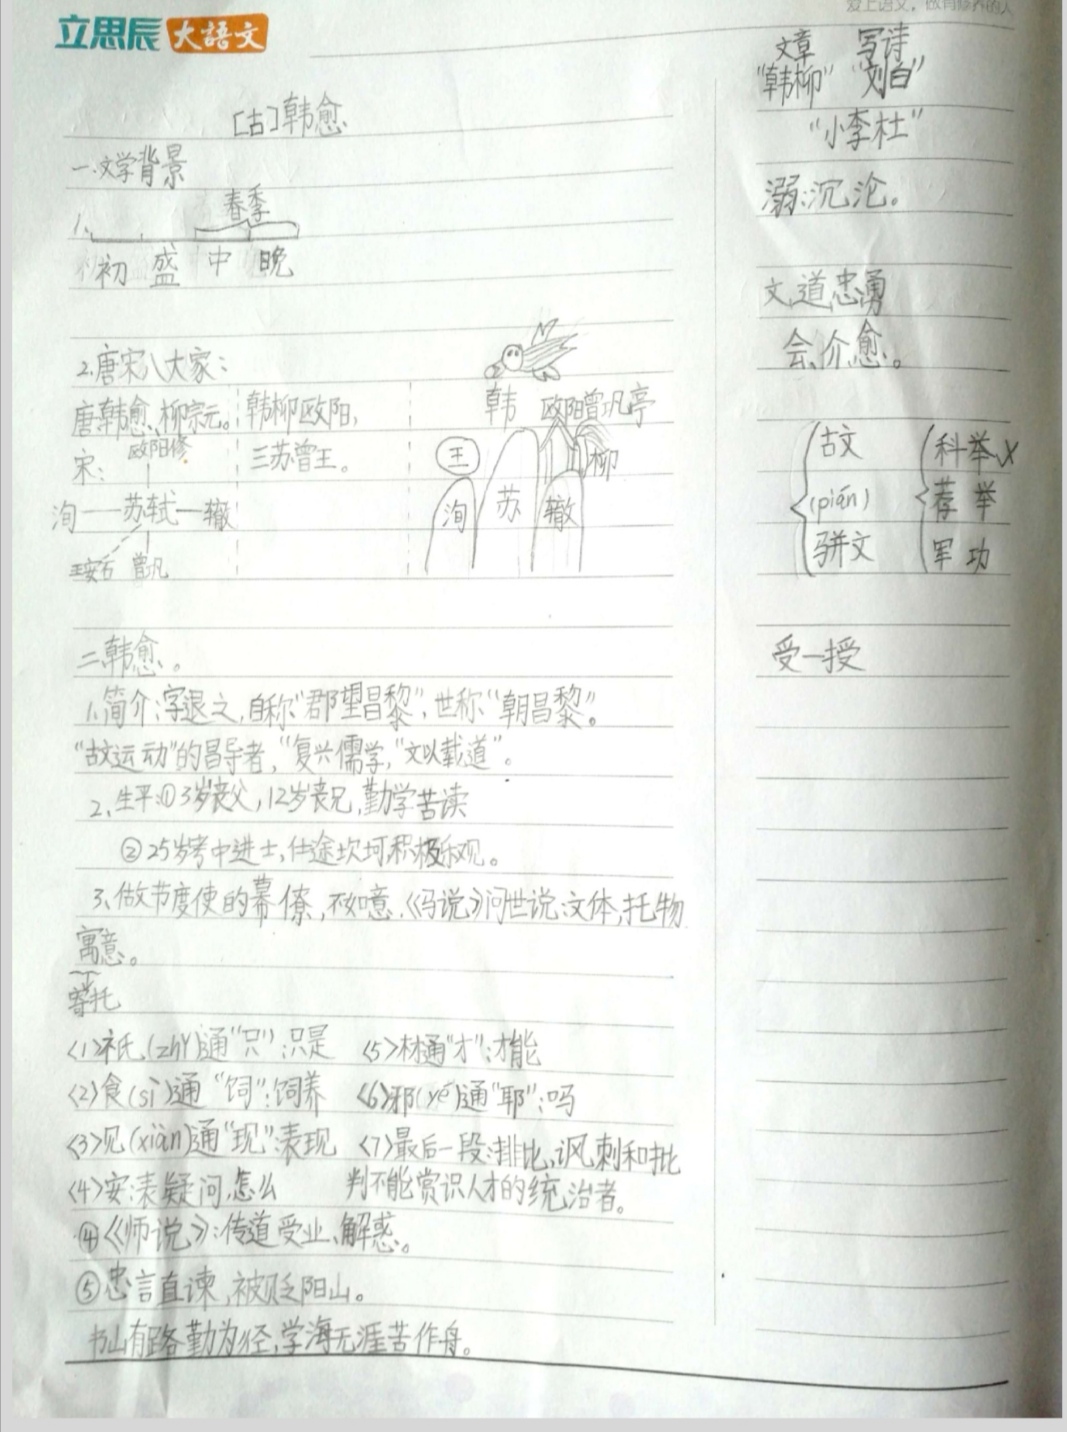 立思辰大語文
[古]韩愈
一.文学背景
春季
1、
初 盛 中 晚
2.唐宋八大家:
唐:韩愈、柳宗元。
宋:
欧阳修
洵——苏轼—辙
王安石 曾凡
韩柳欧阳,
三苏曾王。
韩 欧阳曾凡亭
王 柳
洵 苏 辙
二.韩愈。
1.简介:字退之,自称"郡望昌黎",世称"朝昌黎"。
"古文运动"的昌导者,"复兴儒学,"文以载道"。
2、生平:①3岁丧父,12岁丧兄,勤学苦读
②25岁考中进士,仕途坎坷积极乐观。
3、做节度使的幕僚,不如意.《马说》问世说:文体,托物
寓意。
寄托
<1>祇(zhǐ)通"只":只是
<2>食(sì)通"饲":饲养
<3>见(xiàn)通"现":表现
<4>安:表疑问,怎么
<5>材通"才":才能
<6>邪(yé)通"耶":吗
<7>最后一段:排比,讽刺和批
判不能赏识人才的统治者。
④《师说》:传道受业、解惑。
⑤忠言直谏,被贬阳山。
书山有路勤为径,学海无涯苦作舟。
爱上语文,做有修养的人
文章 写诗
"韩柳" "刘白"
"小李杜"
溺:沉沦。
文道忠勇
会介愈。
古文
(pián)
骈文
科举X
荐举
军功
受—授